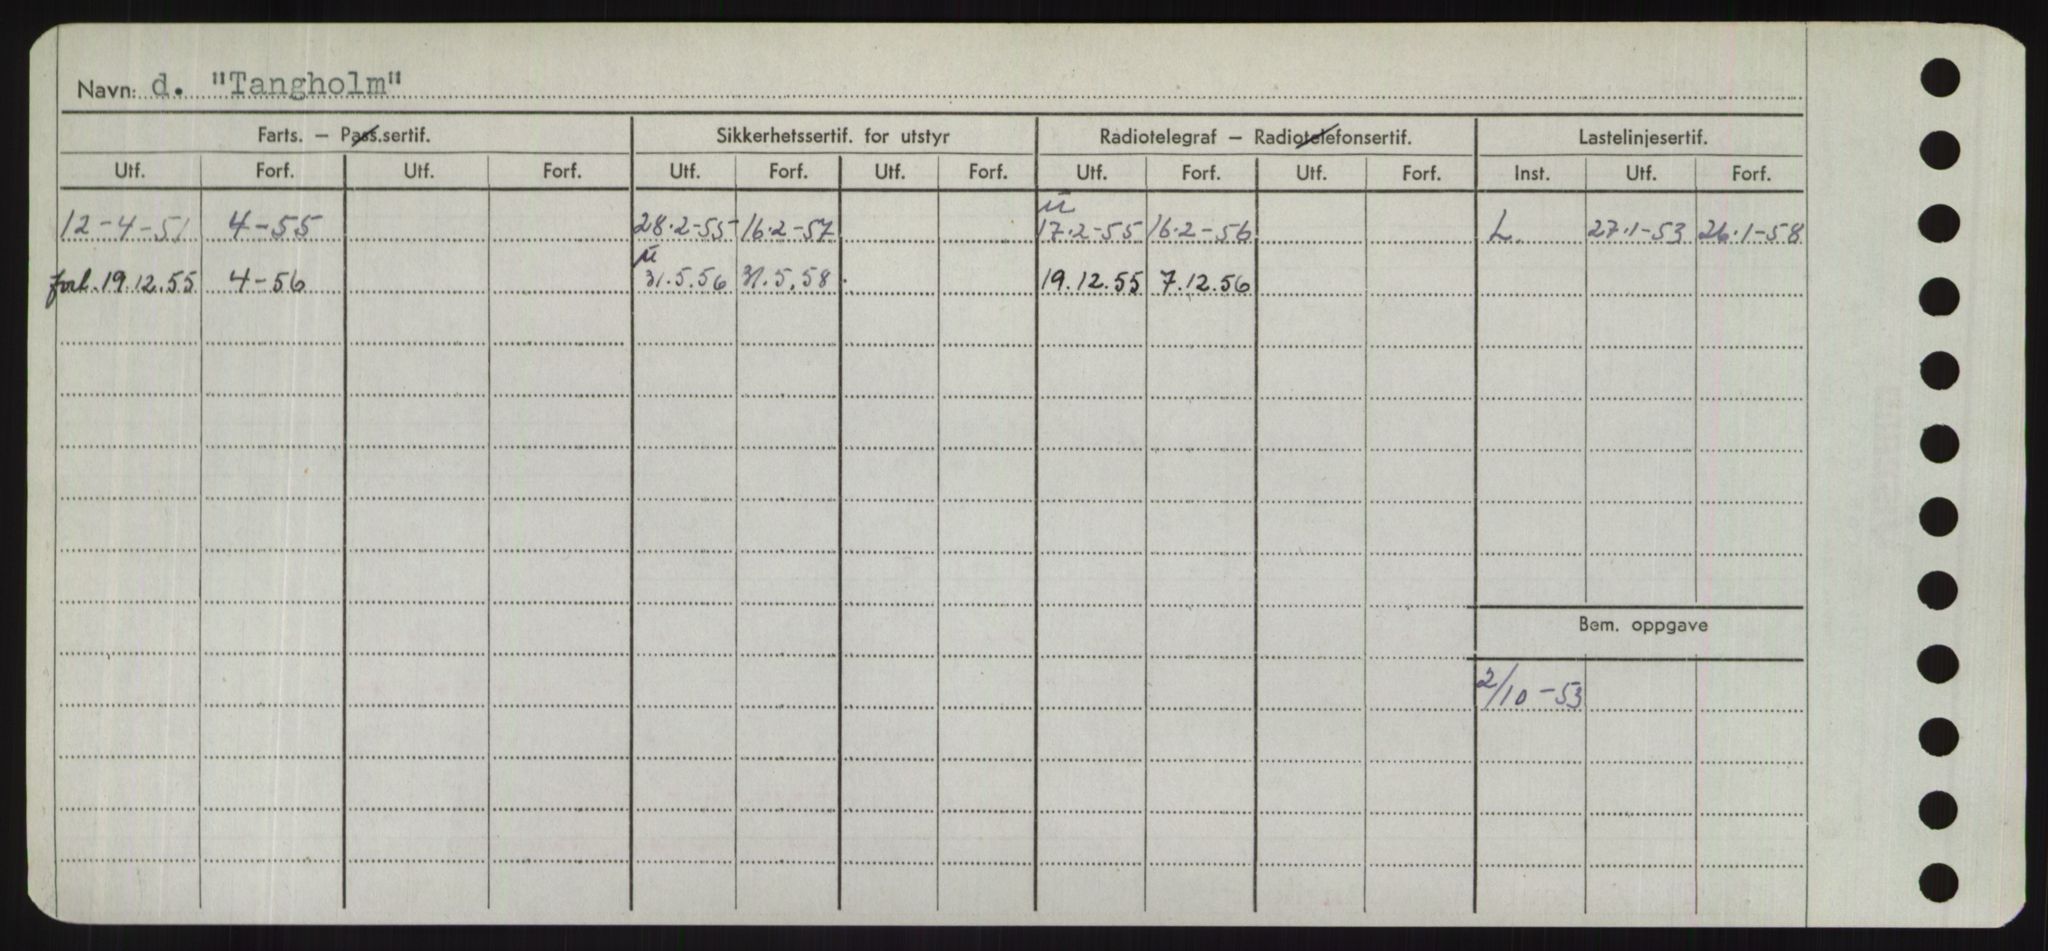 Navn: d. "Tangholm"
Farts. — Pass.sertif. Sikkerhetssertif. for utstyr Radiotelegraf — Radiotelefonsertif. Lastelinjesertif.
Utf. Forf. Utf. Forf. Utf. Forf. Utf. Forf. Utf. Forf. Utf. Forf. Inst. Utf. Forf.
12-4-51 4-55 28.2-55 16.2-57 17.2-55 16.2-56 L. 27.1-53 26.1-58
forl. 19.12.55 4-56 31.5.56 31.5.58 19.12.55 7.12.56
Bem. oppgave
2/10-53